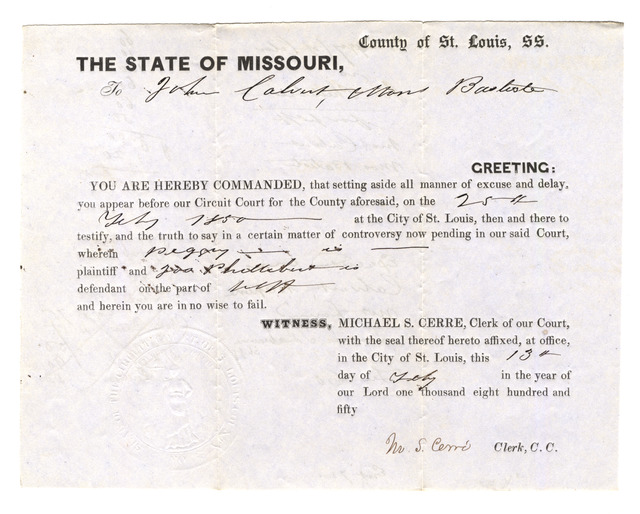 County of St. Louis, SS.
THE STATE OF MISSOURI,
To John Calvert, Mons Bastiste
GREETING:
YOU ARE HEREBY COMMANDED, that setting aside all manner of excuse and delay,
you appear before our Circuit Court for the County aforesaid, on the 25th
Feby 1850 at the City of St. Louis, then and there to
testify, and the truth to say in a certain matter of controversy now pending in our said Court,
wherein Peggy is
plaintiff and Jos Philibert is
defendant on the part of Plff
and herein you are in no wise to fail.
WITNESS, MICHAEL S. CERRE, Clerk of our Court,
with the seal thereof hereto affixed, at office,
in the City of St. Louis, this 13th
day of Feby in the year of
our Lord one thousand eight hundred and
fifty
M. S. Cerré Clerk, C. C.